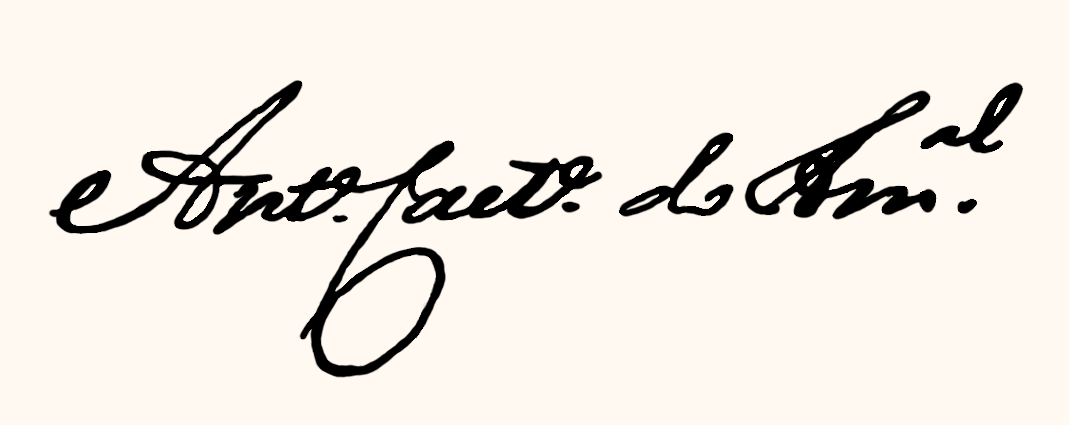 Antº. Caetº. do Am.al